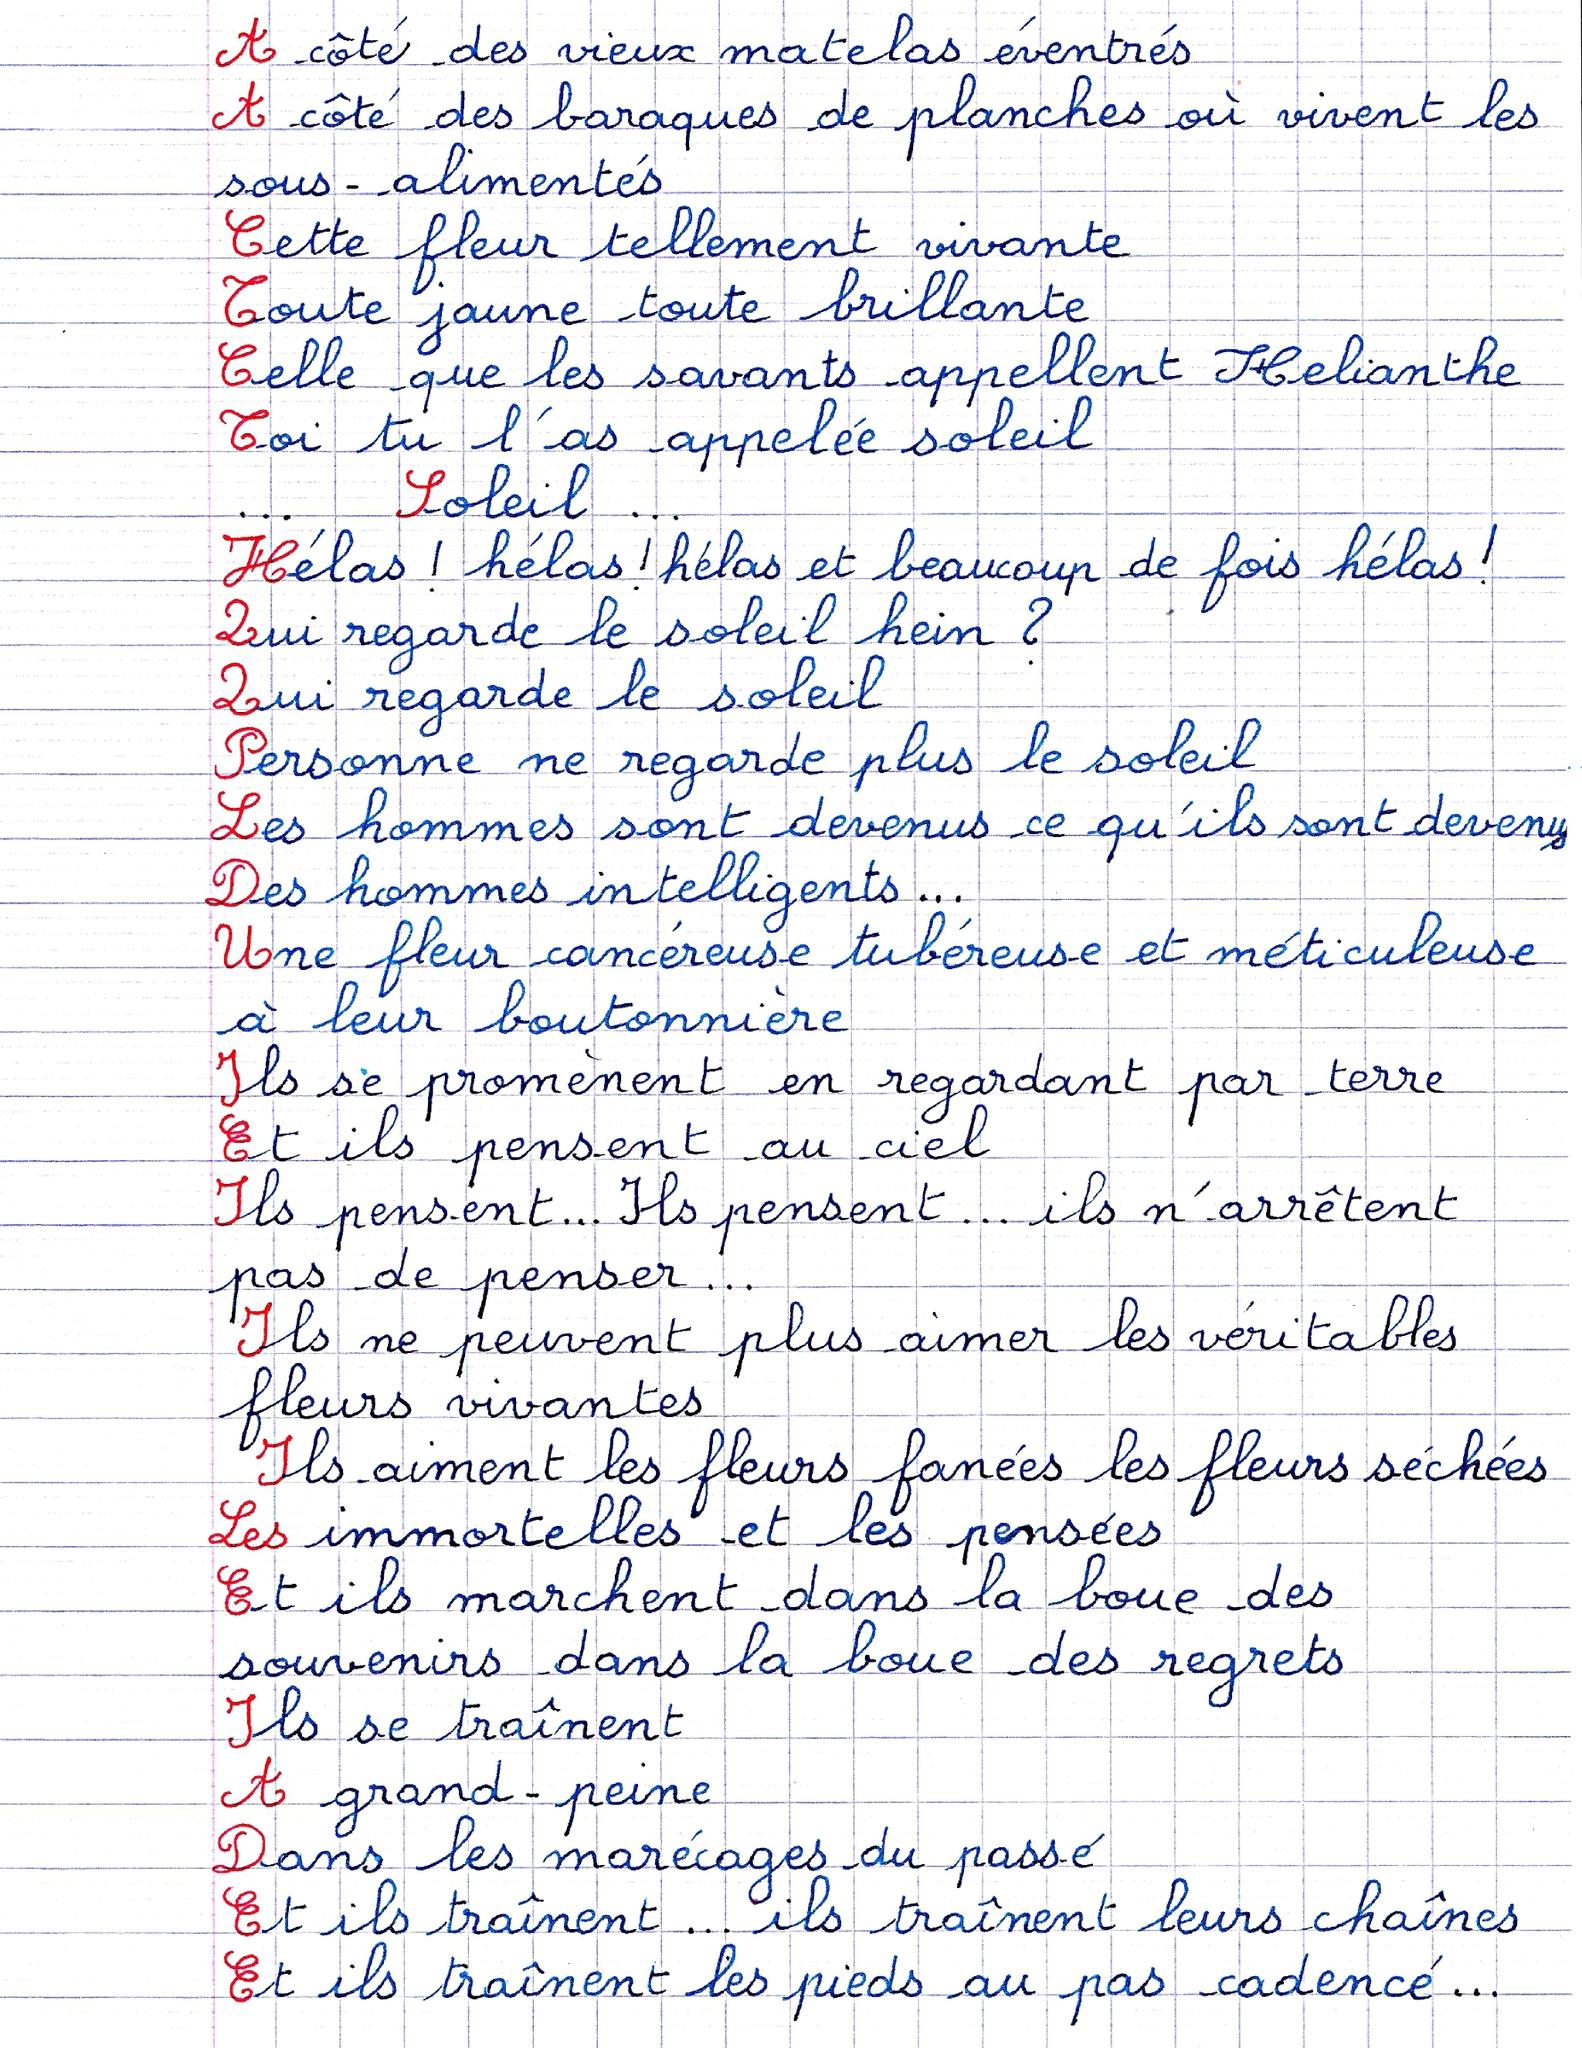 A côté des vieux matelas éventrés
A côté des baraques de planches où vivent les
sous-alimentés
Cette fleur tellement vivante
Toute jaune toute brillante
Celle que les savants appellent Helianthe
Toi tu l'as appelée soleil
... Soleil ...
Hélas ! hélas ! hélas et beaucoup de fois hélas !
Qui regarde le soleil hein ?
Qui regarde le soleil
Personne ne regarde plus le soleil
Les hommes sont devenus ce qu'ils sont devenus
Des hommes intelligents...
Une fleur cancéreuse tubéreuse et méticuleuse
à leur boutonnière
Ils se promènent en regardant par terre
Et ils pensent au ciel
Ils pensent... Ils pensent... ils n'arrêtent
pas de penser...
Ils ne peuvent plus aimer les véritables
fleurs vivantes
Ils aiment les fleurs fanées les fleurs séchées
Les immortelles et les pensées
Et ils marchent dans la boue des
souvenirs dans la boue des regrets
Ils se traînent
A grand-peine
Dans les marécages du passé
Et ils traînent... ils traînent leurs chaînes
Et ils traînent les pieds au pas cadencé...